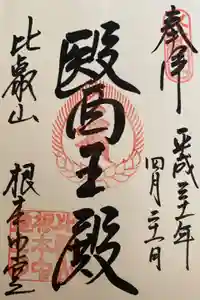 奉拝
平成三十一年
四月二十一日
醫王殿
比叡山
根本中堂